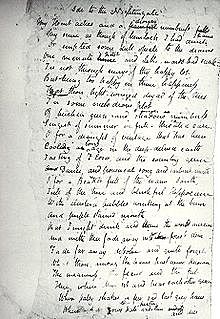 Ode to the Nightingale
My Heart aches and a numbness falls
My sense as though of hemlock I had drunk
Or emptied some dull opiate to the drains
One minute and Lethe-wards had sunk
'Tis not through envy of thy happy lot
But being too happy in thine happiness
That thou light-winged dryad of the trees
In some melodious plot
Of beechen green and shadows numberless
Singest of summer in full-throated ease
O for a draught of vintage that has been
Cooling an age in the deep-delved earth
Tasting of Flora, and the country green
And Dance, and song and sunburnt mirth
O for a Beaker full of the warm South
Full of the true and blushful Hippocrene
With cluster'd bubbles winking at the brim
And purple stained mouth
That I might drink and leave the world unseen
And with thee fade away into forest dim
Fade far away dissolve and quite forget
What thou among the leaves hast never known
The weariness the fever and the fret
Here, where men sit and hear each other groan
Where palsy shakes a few sad last grey hairs
Where youth grows pale and thin and